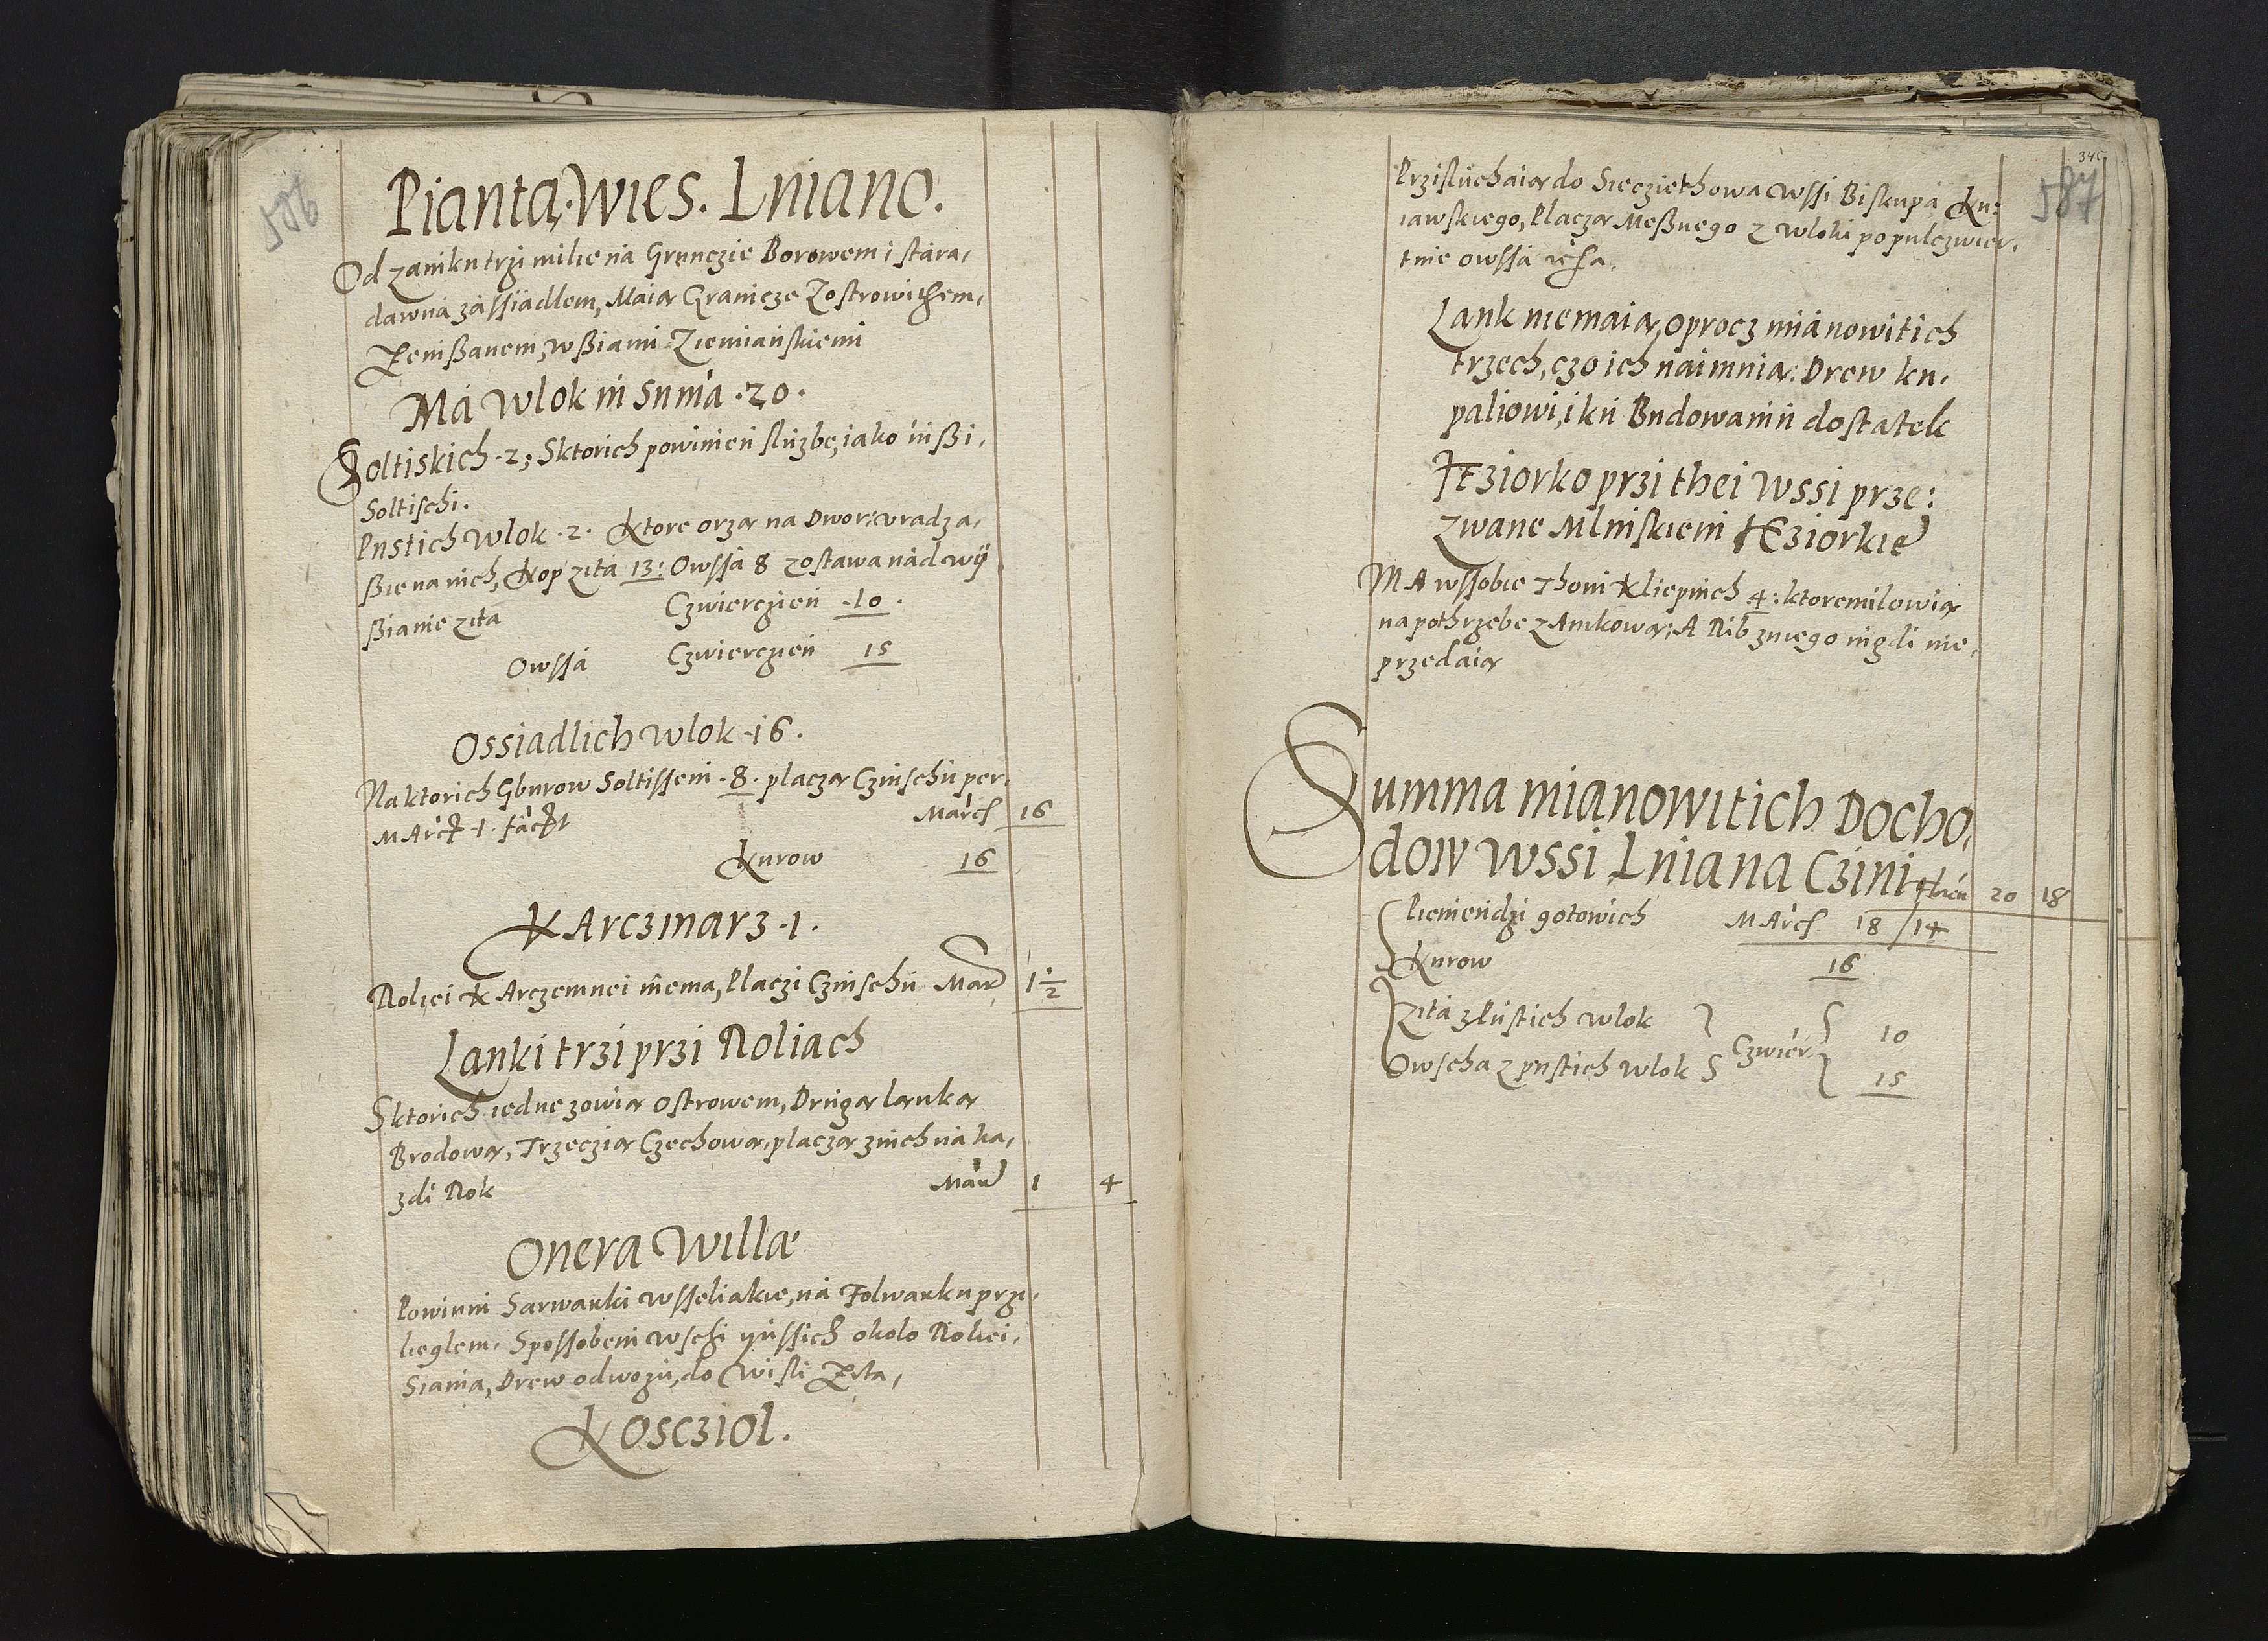 586
Pianta, Wies. Lniano.
Od zamku trzi milie na Grunczie Borowem i stara,
dawna zassiadlem, Maią Granicze Zostrowithem,
Zemßanem, wßiami Ziemianskiemi
Ma Wlok in Suma .20.
Soltiskich .2; Sktorich powinien sluzbę, iako inßi,
Soltischi.
Pustich Wlok .2. Ktore orzą na Dwor: vradza,
ßie na nich, Kop zita 13: Owssa 8 zostawa nadewy
ßianie zita Czwierczien .10.
Owssa Czwierczien 15
Ossiadlich Wlok .16.
Naktorich Gburow Soltissem .8. placzą Czinschu per,
March .1. facit March 16
Kurow 16
KArczmarz .1.
Roliei KArczemnei niema, Placzi Czinschu Mar 1 1/2
Lanki trzi przi Roliach
Sktorich iednę zowią Ostrowem, Drugą lanką
Brodową, Trzeczią Czechową, placzą znich na ka,
zdi Rok Mar 1 4
Onera Willæ
Powinni Sarwarki wsseliakie, na Folwarku prze,
lieglem. Spossobem wschi inssich okolo Roliei,
Siania, Drew odwozu, do Wisli Zita,
Kosciol.
346
587
Przisluchaią do Siecziethowa Wssi Biskupa Ku:
iawskiego, Placzą Meßnego z Wloki po pulczwier,
tnie owssa
Lank niemaią, oprocz mianowitich
trzech, czo ich naimnią: Drew ku,
paliowi, i ku Budowaniu dostatek
IEziorko przi thei Wssi prze:
zwane Mlinskiem IEziorkie
MA wssobie Thoni Kliepnich 4: ktoremi lowią
na pothrzebe zAmkową; A Rib zniego nigdi nie,
przedaią
Summa mianowitich Docho,
dow Wssi Lniana Czini floren 20 18
Pieniendzi gotowich MArch 18 / 14
Kurow 16
Zita z Pustich Wlok 10
Czwier
Owscha z pustich Wlok 15